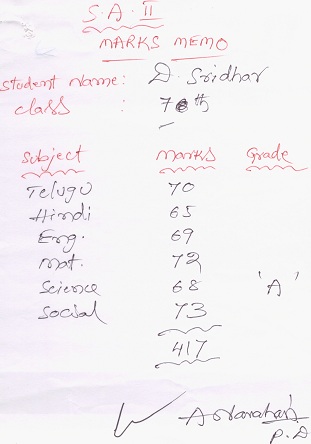 S.A. II
MARKS MEMO
Student Name: D. Sridhar
Class : 7th
Subject Marks Grade
Telugu 70
Hindi 65
Eng. 69
Mat. 72
Science 68 'A'
Social 73
417
P.D